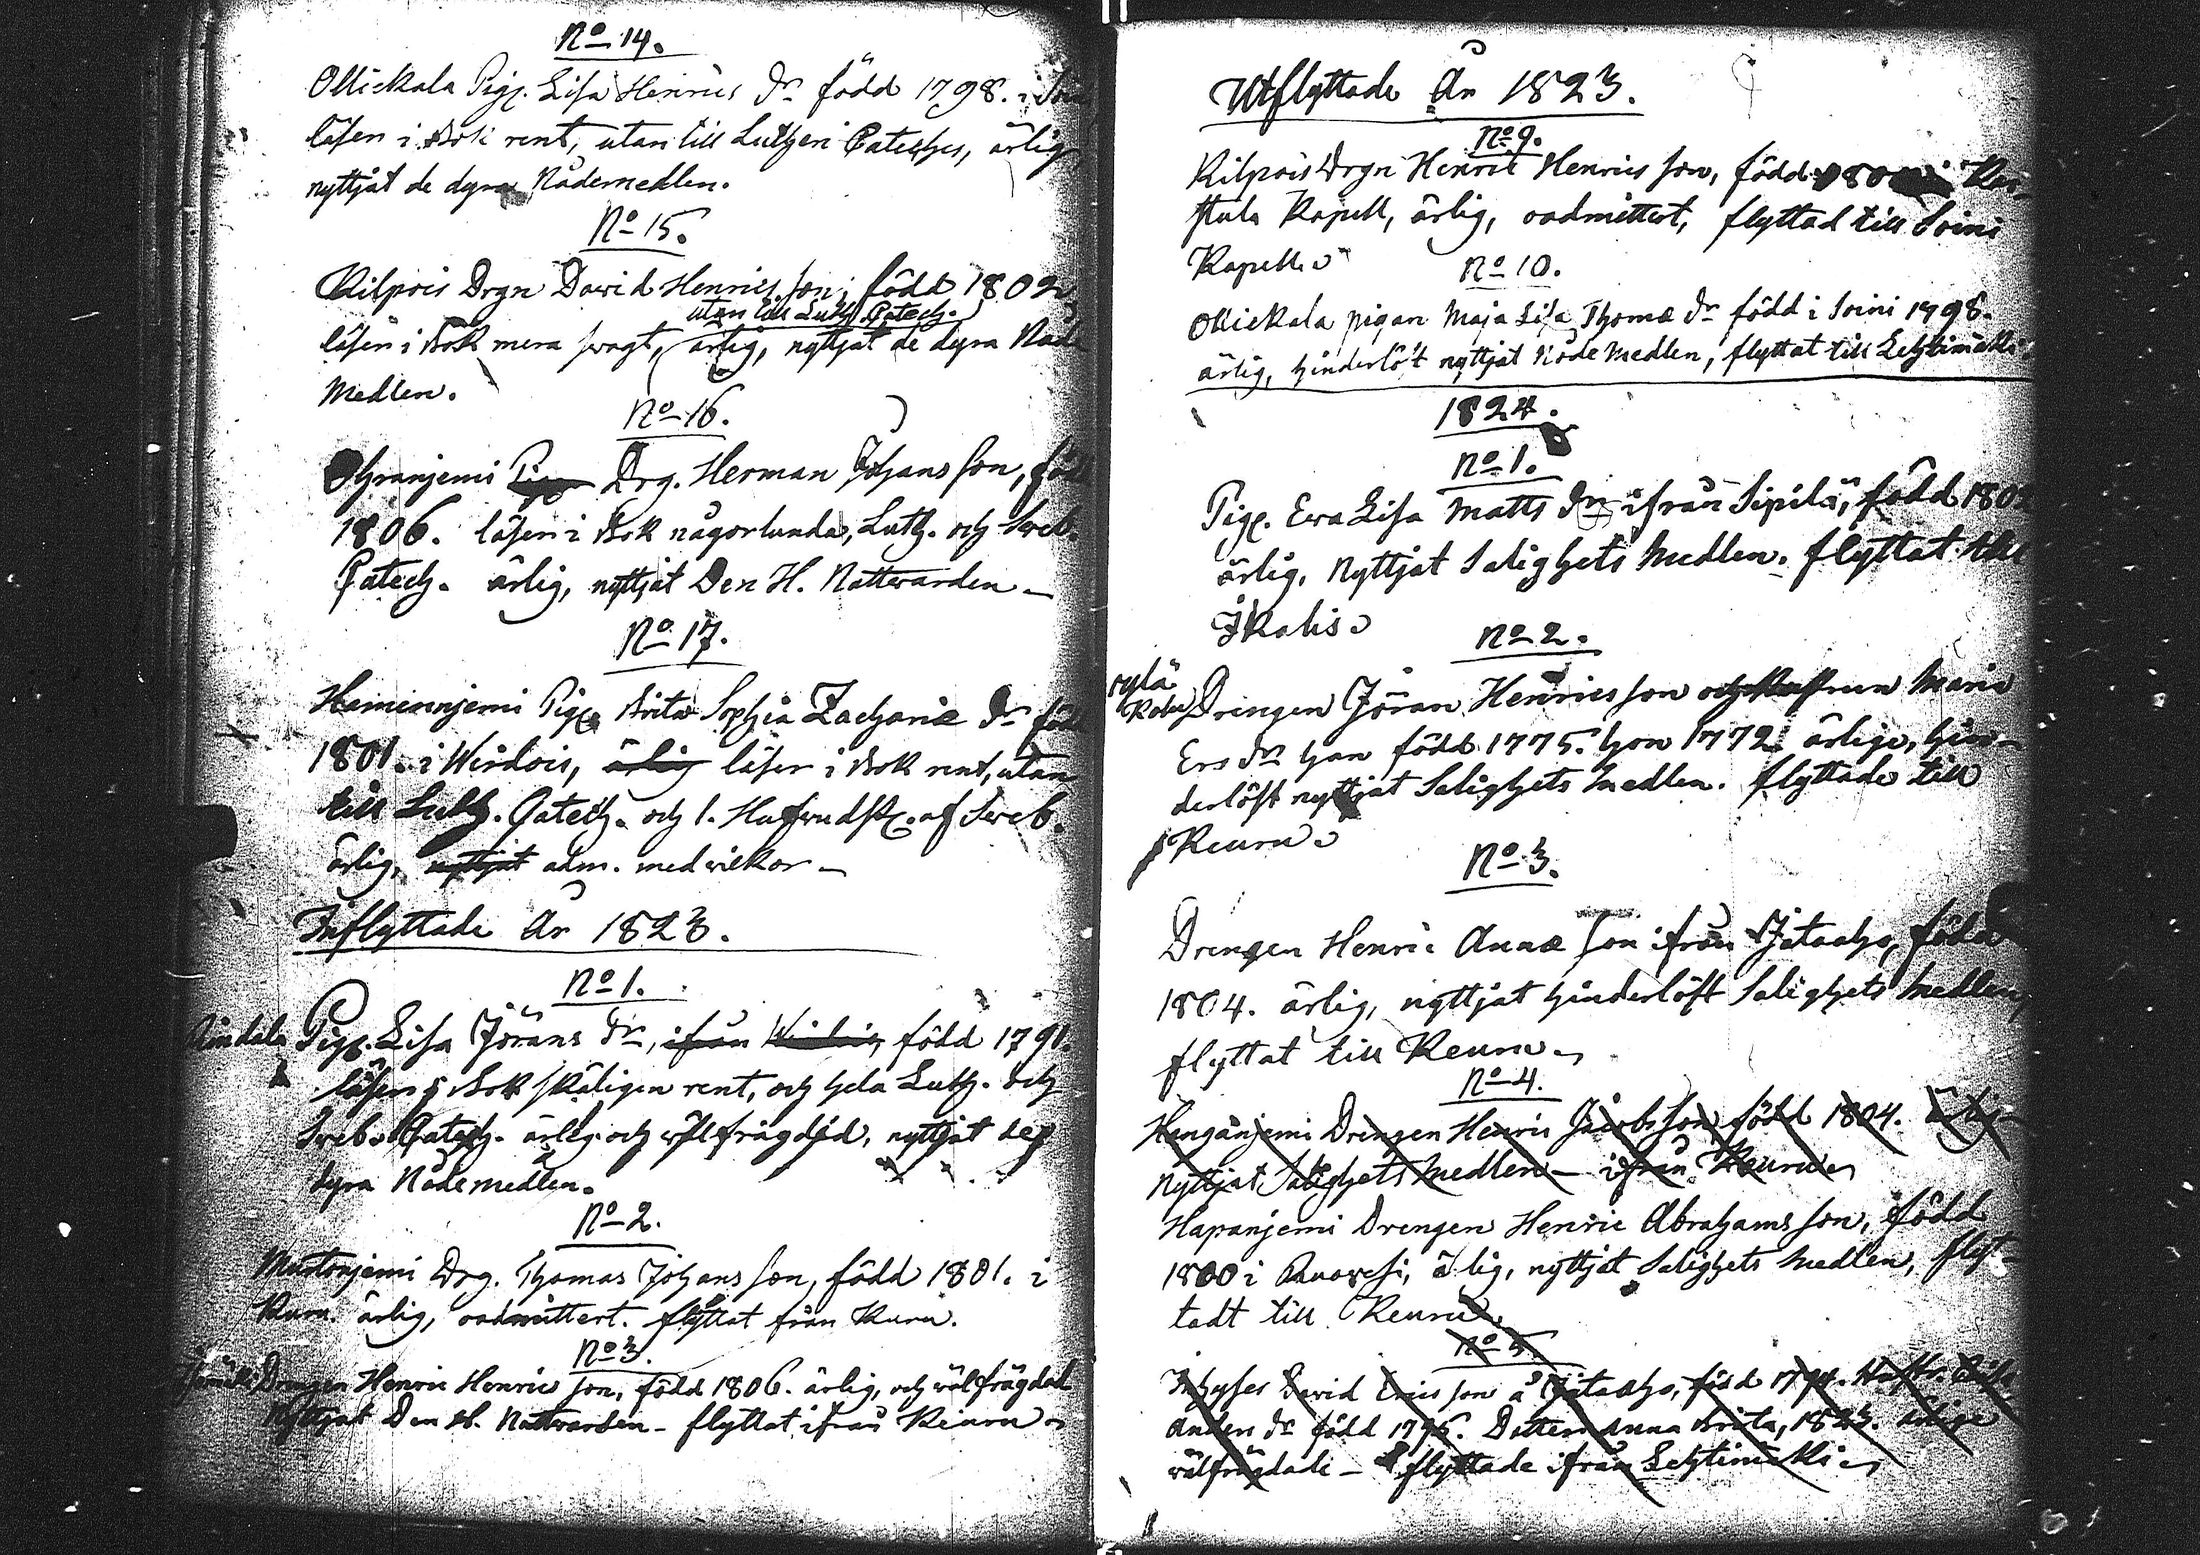 No 14.
Ollickala Pig. Lisa Henrics Dr född 1798. i
läser i Bok rent, utan till Lutheri Cateches, ärlig,
nyttjat de dyra Nådemedlen.
No 15.
Kilpois Drgn David Henrics son, född 1802
utan till Luth. Catech.
läser i Bok mera swagt, ärlig, nyttjat de dyra Nåde
Medlen.
No 16.
Ohranjemi Piga Drg. Herman Johans son, född
1806. läser i Bok någorlunda, Luth. och Sweb.
Catech. ärlig, nyttjat Den H. Nattwarden
No 17.
Haminnjemi Pig. Brita Sophia Zachariæ Dr född
1801. i Wirdois, ärlig läser i Bok rent, utan
till Luth. Catech. och 1. Hufwudst. af Sweb.
ärlig, nyttjat adm. med wilkor
Inflyttade År 1823.
No 1.
Pig. Lisa Jörans Dr, ifrån född 1791.
läser i Bok skäligen rent, och hela Luth. och
Sweb. Catech. ärlig och wälfrägdad, nyttjat de
dyra Nådemedlen.
No 2.
Mustonjemi Drg. Thomas Johans son, född 1801. i
Kuru. ärlig, oadmittert. flyttat från Kuru.
No 3.
Drengen Henric Henrics son, född 1806. ärlig, och wälfrägdad
Nyttjat Den H. Nattwarden - flyttat ifrån Keuru
Utflyttade År 1823.
No 9.
Kilpois Drgn Henric Henrics son, född 180 i Kar-
stula Kapell, ärlig, oadmittert, flyttad till Soini
Kapell.
No 10.
Ollickala pigan Maja Lisa Thomæ Dr född i Soini 1798.
ärlig, hinderlöst nyttjat Nåde Medlen, flyttat till Lehtimäki
1824.
No 1.
Pig. Ewa Lisa Matts Dr ifrån Sipilä, född 180
ärlig, Nyttjat Salighets Medlen. flyttat till
Ikalis.
No 2.
Drengen Jöran Henrics son och Hustrun Maria
Ers Dr han född 1775. hon 1772. ärlige, hin-
derlöst nyttjat Salighets Medlen. flyttade till
Keuru.
No 3.
Drengen Henric Annæ Son ifrån Jätaaho, född
1804. ärlig, nyttjat hinderlöst Salighets Medlen,
flyttat till Keuru.
No 4.
Hangänjemi Drengen Henric Jacobs Son född 1804. ärlig
Nyttjat Salighets Medlen - ifrån Keuru
Hapanjemi Drengen Henric Abrahams son, född
1800 i Ruowesi, ärlig, nyttjat Salighets Medlen, flyt-
tadt till Keuru.
No 5.
Inhyses David Erics son å Jätaaho, född
Anders Dr född 1796. Dotter Anna Brita, 1823. ärlige
wälfrägdade - flyttade ifrån Lehtimäki